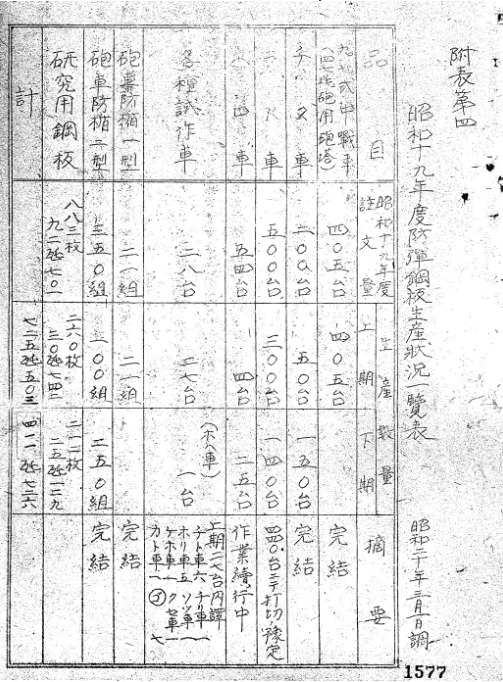 附表第四
昭和十九年度防彈鋼板生産狀況一覽表
昭和二十年三月 日調
品目
昭和十九年度註文量
生産數量
上期
下期
摘要
(四七粍砲用砲塔)
四〇五台
四〇五台
完結
チヌ車
二〇〇台
五〇台
一五〇台
完結
車
五〇〇台
三〇〇台
一四〇台
四四〇台ニテ打切豫定
車
五四台
四台
二五台
作業續行中
各種試作車
二八台
二七台
(ホハ車)
一台
上期二七台内譯
チト車六 チリ車一
ホリ車五 ソツ車一
砲塞防楯一型
二一組
二一組
完結
砲車防楯二型
三五〇組
一〇〇組
二五〇組
完結
研究用鋼板
八八三枚
九二瓲七〇一
二六〇枚
三〇瓲七四三
二一二枚
二五瓲一二九
計
七二五瓲五〇三
四一一瓲七二六
1577